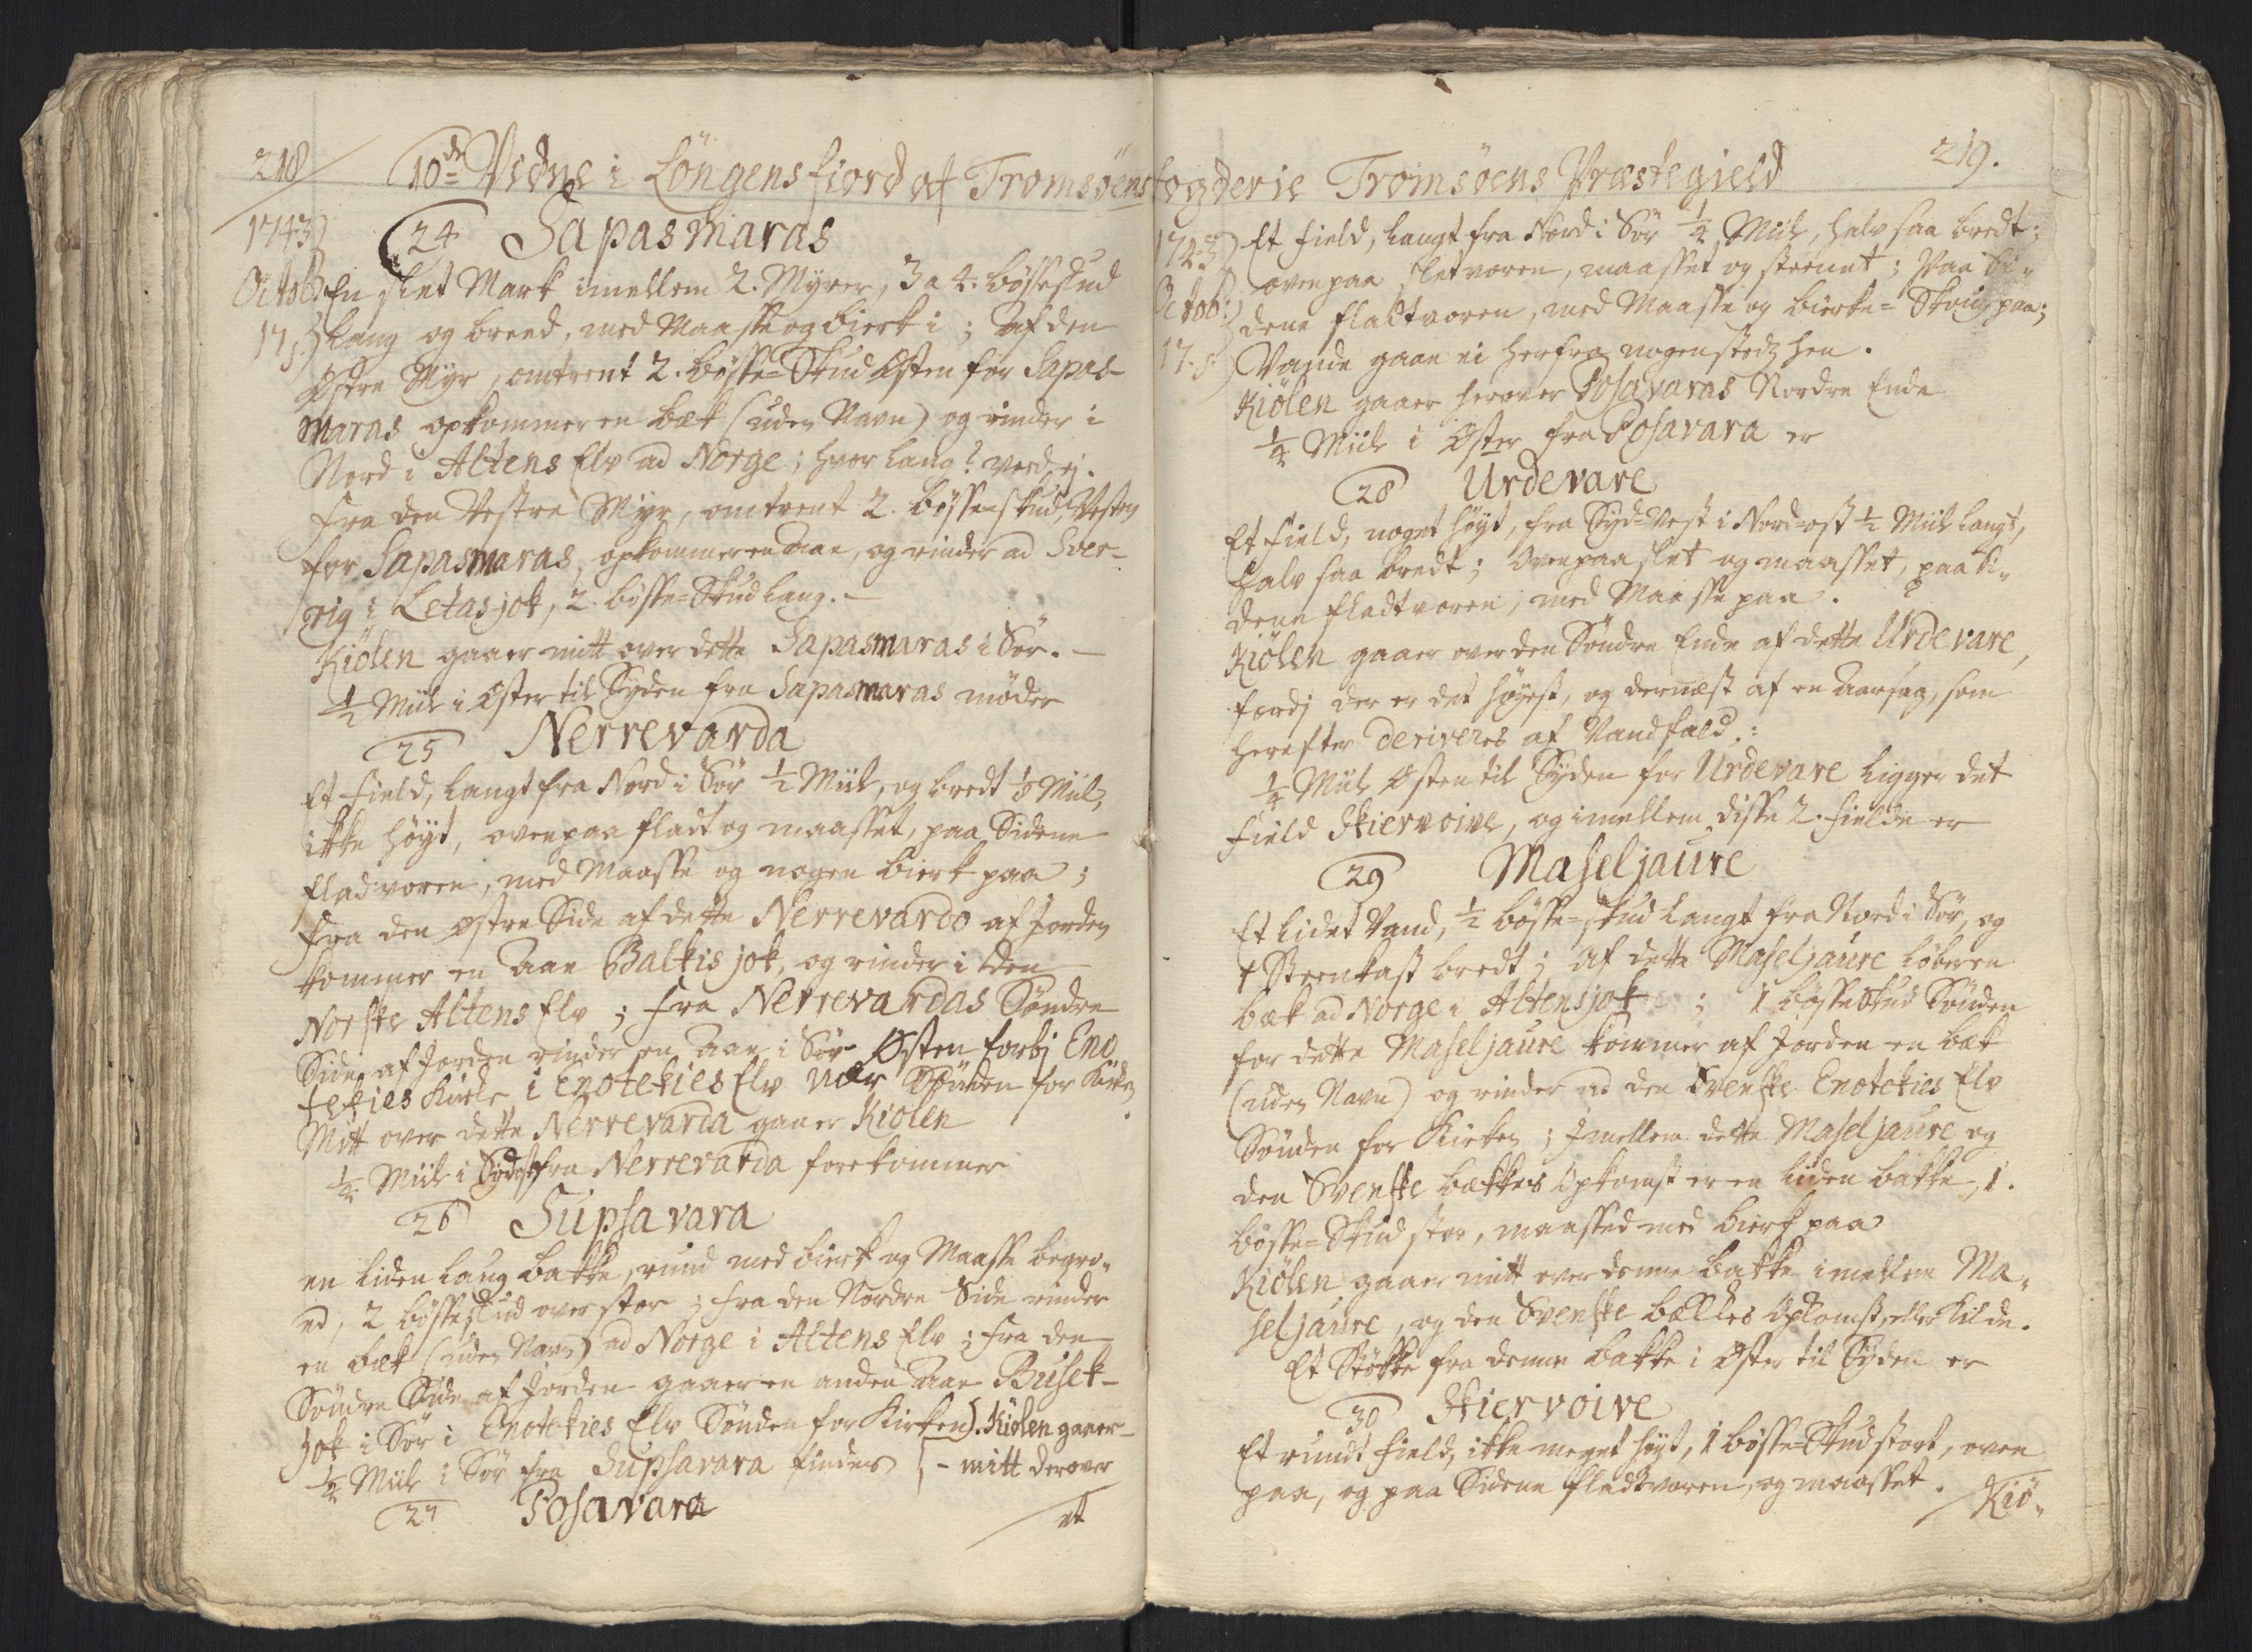 218
10de Vidne i Löngens fiord af Tromsöens
1743
Octob:
17.
24 Sapasmaras
En slet Mark imellem 2. Myrer, 3 a 4. bösseskud
lang og breed, med Maasse og birk i; Af den
Østre Myr, omtrent 2. bösse-Skud Østen for Sapas-
maras opkommer en bæk (uden Navn) og rinder i
Nord i Altens Elv ad Norge; hvor lang? veed ej.
Fra den Vestre Myr, omtrent 2. bösse-skud Vesten
for Sapasmaras, opkommer en Aae, og rinder ad Sver-
rig i Letasjok, 2. bösse-Skud lang. -
Kiölen gaaer mitt over dette Sapasmaras i Sör. -
1/2 Miil i Øster til Syden fra Sapasmaras möder
25 Nerrevarda
Et Field, langt fra Nord i Sör 1/2 Miil, og bredt 1/8 Miil,
ikke höyt, ovenpaa fladt og maasset, paa Siderne
fladvoren, med Maasse og nogen birk paa;
Fra den østre Side af dette Nerrevardo af Jorden
kommer en Aae Baltisjok, og rinder i den
Norske Altens Elv; Fra Nerrevardas Söndre
Side af Jorden rinder en Aae i Sör Østen forbj Eno
tekies Kirke i Enotekies Elv nær Sönden for Kirken.
Mitt over dette Nerrevarda gaaer Kiolen
1/4 Miil i Sydost fra Nerrevarda forekommer
26 Supsavara
en liden lang bakke, rund med birk og Maasse begro-
ed, 2 bösseskud over stor; fra den Nordre Side rinder
en bæk (uden Navn) ad Norge i Altens Elv; fra den
Söndre Side af Jorden gaaer en anden Aae Busek-
jok i Sör i Enotekies Elv Sönden for Kirken. Kiölen gaaer
- mitt derover
1/4 Miil i Sör fra Supsavara findes
27 Posavara
et
fogderie Tromsöens Præstegield
219.
1743
Octob:
17.
Et Field, langt fra Nord i Sör 1/4 Miil, halv saa bredt;
ovenpaa sletvoren, maasset og steenet; Paa Si-
derne flattvoren, med Maasse og birke-Skoug paa;
Vande gaae ei herfra nogenstedz hen.
Kiölen gaaer herover Posavaras Nordre Ende
1/4 Miil i Øster fra Posavara er
28 Urdevare
Et Field, noget höyt, fra Syd-Vest i Nord-ost 1/2 Miil langt,
halv saa bredt; Ovenpaa slet og maasset, paa Si-
derne fladtvoren, med Maasse paa.
Kiölen gaaer over den Söndre Ende af dette Urdevare,
fordj der er det höyest, og dernæst af en Aarsag, som
herefter deriveres af Vandfald.:
1/4 Miil Østen til Syden for Urdevare ligger det
Field Skiervoive, og imellem disse 2. Fielde er
29 Maseljaure
Et lidet Vand, 1/2 bösse-skud langt fra Nord i Sör, og
1 Steenkast bredt; Af dette Maseljaure löber en
bæk ad Norge i Altensjok; 1 bösseskud Sönden
for dette Maseljaure kommer af Jorden en bæk
(uden Navn) og rinder ad den Svenske Enotekies Elv
Sönden for Kirken; Imellem dette Maseljaure og
den Svenske bækkes Opkomst er en liden bakke, 1.
bösse-Skud stor, maasset med birk paa
Kiölen gaaer mitt over denne bakke imellem Ma-
seljaure, og den Svenske bækkes Opkomst, eller Kilde.
Et Stökke fra denne bakke i Øster til Syden er
30 Skiervoive
Et rundt Field, ikke meget höyt, 1 bösse-Skud stort, oven
paa, og paa Siderne fladtvoren, og maasset.
Kiö-